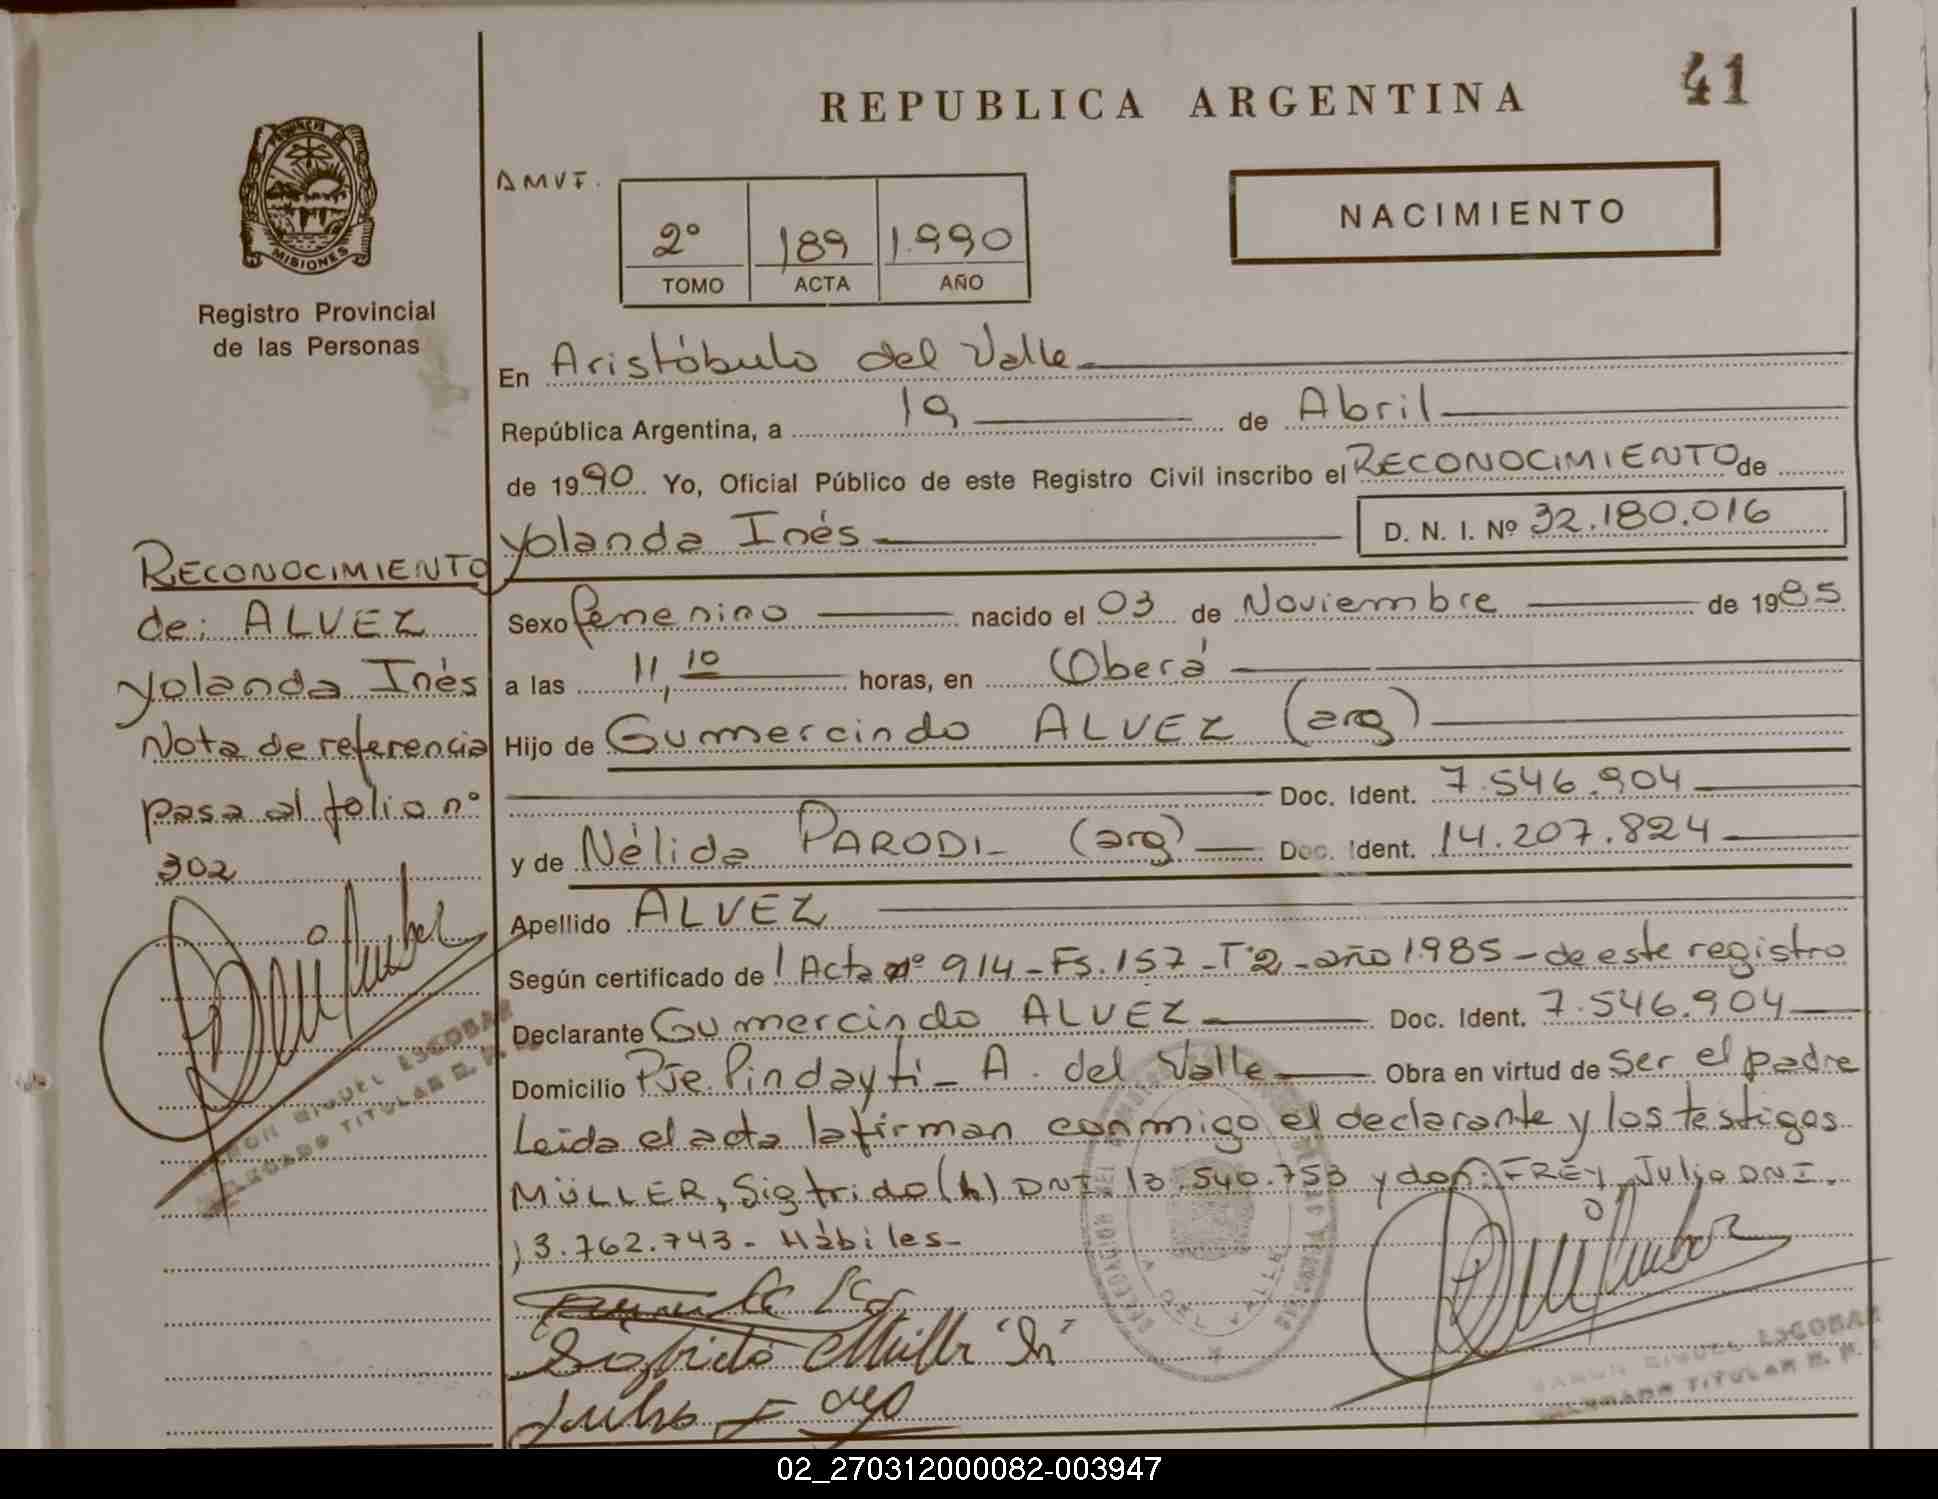 41
REPUBLICA ARGENTINA
PROVINCIA DE
MISIONES
Registro Provincial
de las Personas
AMVF.
2º 189 1.990
TOMO ACTA AÑO
NACIMIENTO
En Aristóbulo del Valle
República Argentina, a 19 de Abril
de 1990 Yo, Oficial Público de este Registro Civil inscribo el RECONOCIMIENTO de
Yolanda Inés D. N. I. Nº 32.180.016
RECONOCIMIENTO
de: ALVEZ
Yolanda Inés
Nota de referencia
pasa al folio nº
302
Sexo femenino nacido el 03 de Noviembre de 1985
a las 11,10 horas, en Oberá
Hijo de Gumercindo ALVEZ (arg)
Doc. Ident. 7.546.904
y de Nélida PARODI_ (arg) Doc. Ident. 14.207.824
Apellido ALVEZ
Según certificado de l Acta nº 914_Fs.157_Tº2_año 1.985_de este registro
Declarante Gumercindo ALVEZ Doc. Ident. 7.546.904
Domicilio Pje Pindaytí_ A. del Valle Obra en virtud de ser el padre
Leída el acta la firman conmigo el declarante y los testigos
MÜLLER, Sigfrido (h) DNI. 13.540.753 y don: FREY, Julio DNI.
13.762.743- Hábiles-
Sigfrido Müller "h"
RAMON MIGUEL ESCOBAR
DELEGADO TITULAR R. P.
RAMON MIGUEL ESCOBAR
DELEGADO TITULAR R. P.
02_270312000082-003947